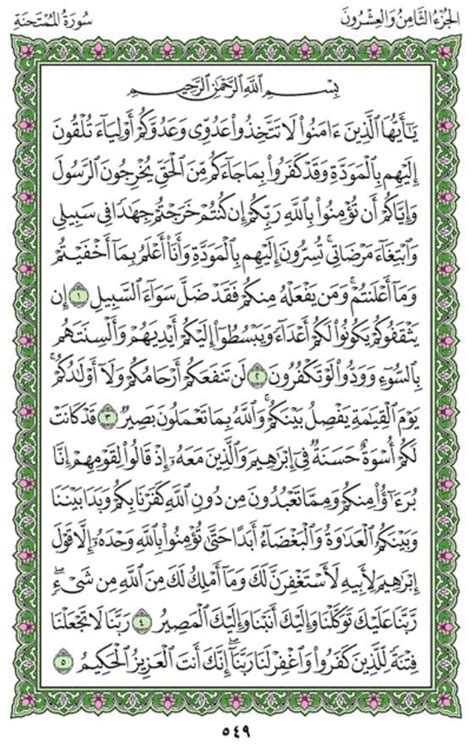 الجزء الثامن والعشرون
سورة الممتحنة
بِسْمِ اللَّهِ الرَّحْمَٰنِ الرَّحِيمِ
يَا أَيُّهَا الَّذِينَ ءَامَنُوا لَا تَتَّخِذُوا عَدُوِّي وَعَدُوَّكُمْ أَوْلِيَاءَ تُلْقُونَ
إِلَيْهِم بِالْمَوَدَّةِ وَقَدْ كَفَرُوا بِمَا جَاءَكُم مِّنَ الْحَقِّ يُخْرِجُونَ الرَّسُولَ
وَإِيَّاكُمْ أَن تُؤْمِنُوا بِاللَّهِ رَبِّكُمْ إِن كُنتُمْ خَرَجْتُمْ جِهَادًا فِي سَبِيلِي
وَابْتِغَاءَ مَرْضَاتِي ۚ تُسِرُّونَ إِلَيْهِم بِالْمَوَدَّةِ وَأَنَا أَعْلَمُ بِمَا أَخْفَيْتُمْ
وَمَا أَعْلَنتُمْ ۚ وَمَن يَفْعَلْهُ مِنكُمْ فَقَدْ ضَلَّ سَوَاءَ السَّبِيلِ ١ إِن
يَثْقَفُوكُمْ يَكُونُوا لَكُمْ أَعْدَاءً وَيَبْسُطُوا إِلَيْكُمْ أَيْدِيَهُمْ وَأَلْسِنَتَهُم
بِالسُّوءِ وَوَدُّوا لَوْ تَكْفُرُونَ ٢ لَن تَنفَعَكُمْ أَرْحَامُكُمْ وَلَا أَوْلَادُكُمْ ۚ
يَوْمَ الْقِيَامَةِ يَفْصِلُ بَيْنَكُمْ ۚ وَاللَّهُ بِمَا تَعْمَلُونَ بَصِيرٌ ٣ قَدْ كَانَتْ
لَكُمْ أُسْوَةٌ حَسَنَةٌ فِي إِبْرَاهِيمَ وَالَّذِينَ مَعَهُ إِذْ قَالُوا لِقَوْمِهِمْ إِنَّا
بُرَءَاؤُا مِنكُمْ وَمِمَّا تَعْبُدُونَ مِن دُونِ اللَّهِ كَفَرْنَا بِكُمْ وَبَدَا بَيْنَنَا
وَبَيْنَكُمُ الْعَدَاوَةُ وَالْبَغْضَاءُ أَبَدًا حَتَّىٰ تُؤْمِنُوا بِاللَّهِ وَحْدَهُ إِلَّا قَوْلَ
إِبْرَاهِيمَ لِأَبِيهِ لَأَسْتَغْفِرَنَّ لَكَ وَمَا أَمْلِكُ لَكَ مِنَ اللَّهِ مِن شَيْءٍ ۖ
رَّبَّنَا عَلَيْكَ تَوَكَّلْنَا وَإِلَيْكَ أَنَبْنَا وَإِلَيْكَ الْمَصِيرُ ٤ رَبَّنَا لَا تَجْعَلْنَا
فِتْنَةً لِّلَّذِينَ كَفَرُوا وَاغْفِرْ لَنَا رَبَّنَا ۖ إِنَّكَ أَنتَ الْعَزِيزُ الْحَكِيمُ ٥
٥٤٩